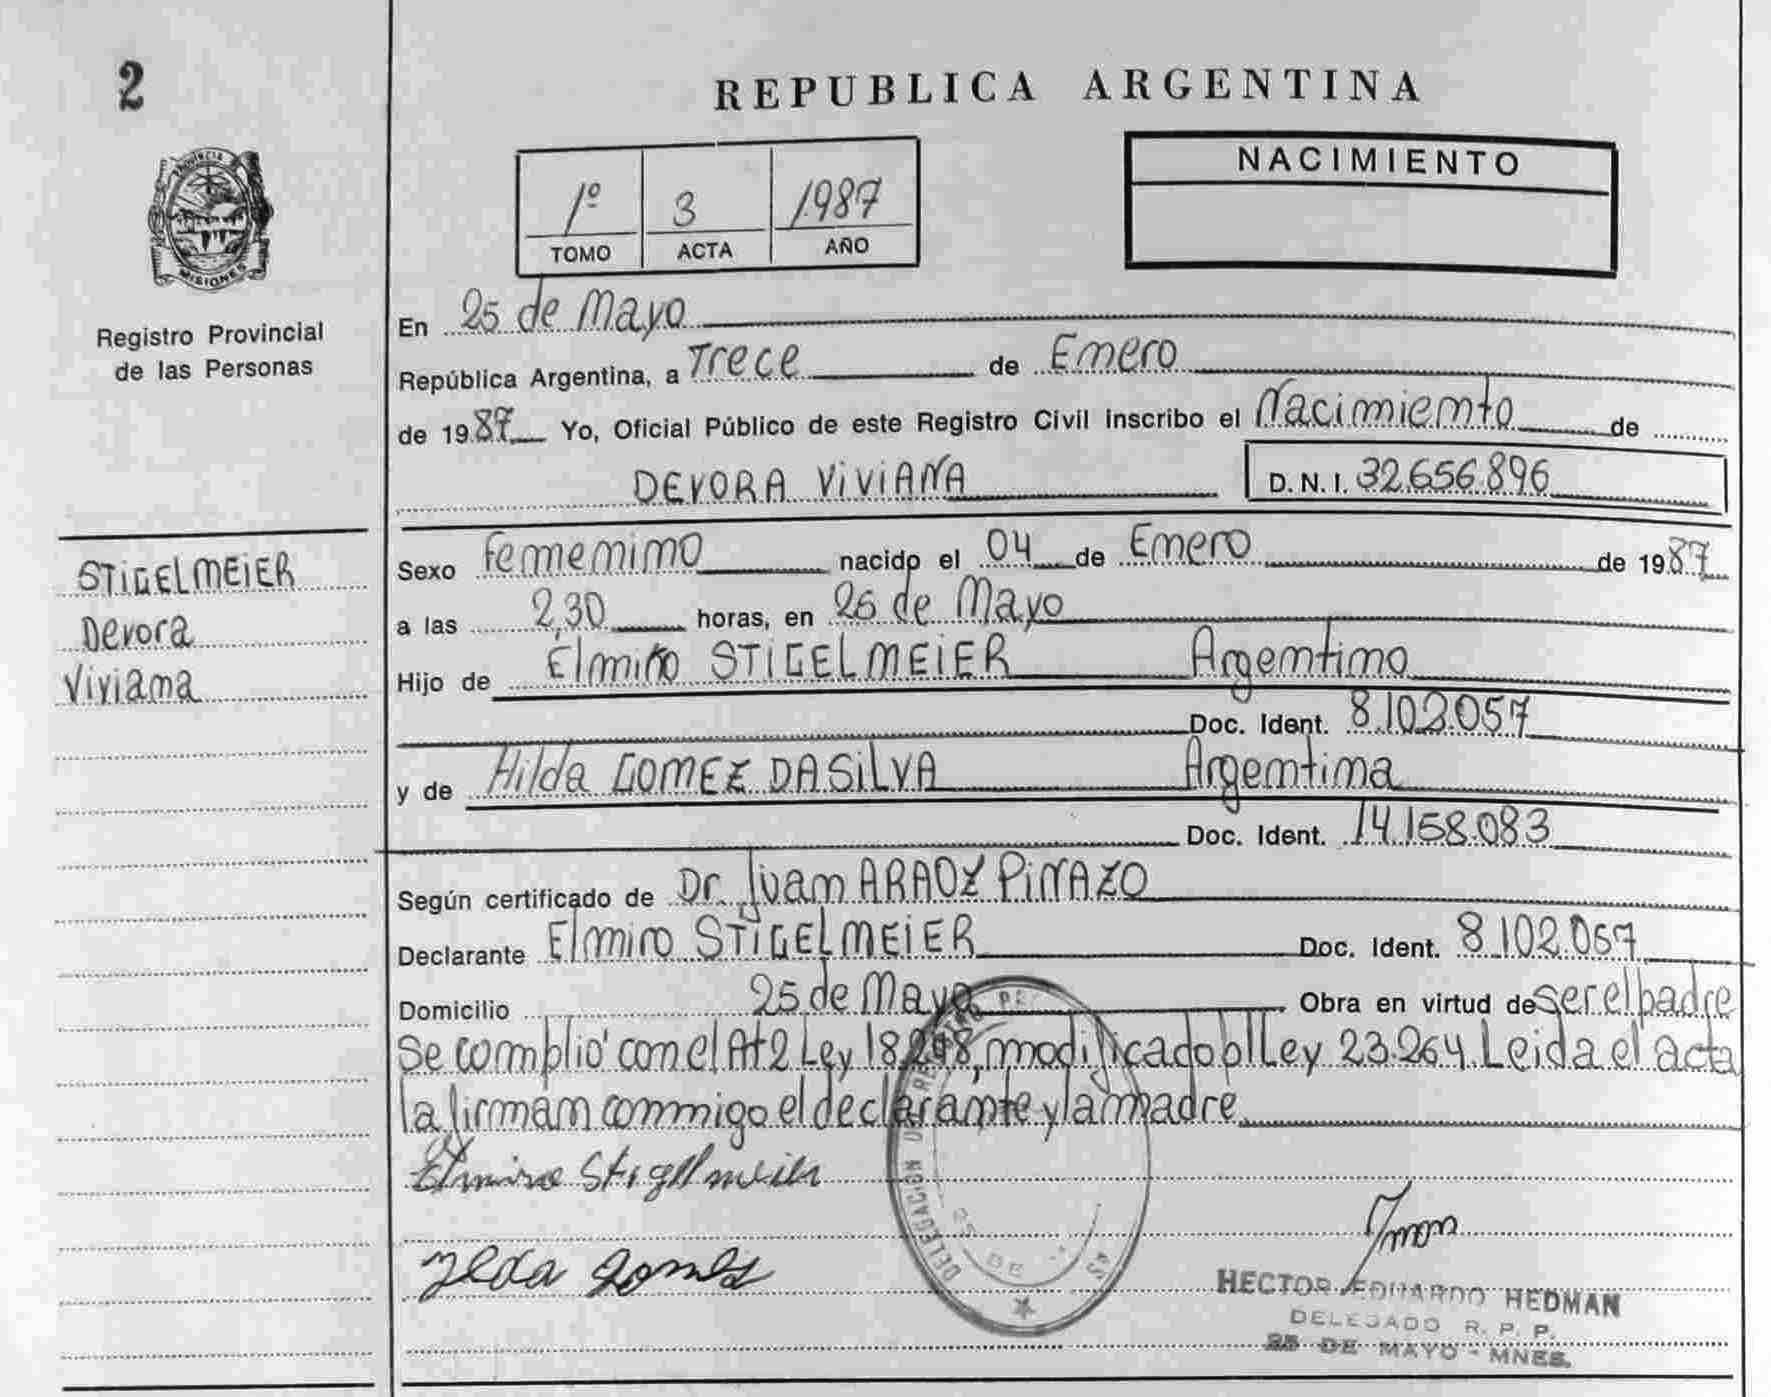 2
REPUBLICA ARGENTINA
PROVINCIA
MISIONES
Registro Provincial
de las Personas
1º 3 1987
TOMO ACTA AÑO
NACIMIENTO
En 25 de Mayo
República Argentina, a Trece de Enero
de 1987 Yo, Oficial Público de este Registro Civil inscribo el Nacimiento de
DEVORA ViViANA D.N.I. 32.656.896
STIGELMEIER
Devora
Viviana
Sexo femenino nacido el 04 de Enero de 1987
a las 2,30 horas, en 25 de Mayo
Hijo de Elmiro STIGELMEIER Argentino
Doc. Ident. 8.102.057
y de Hilda GOMEZ DASILVA Argentina
Doc. Ident. 14.158.083
Según certificado de Dr. Juan ARAOZ PINAZO
Declarante Elmiro STIGELMEIER Doc. Ident. 8.102.057
Domicilio 25 de Mayo Obra en virtud de ser el padre
Se complió con el At 2 Ley 18.248, modificado p/ Ley 23.264. Leida el acta
la firman conmigo el declarante y la madre
Elmiro Stigelmeier
Ilda Gomes
DELEGACION
25 DE
HECTOR EDUARDO HEDMAN
DELEGADO R. P. P.
25 DE MAYO - MNES.